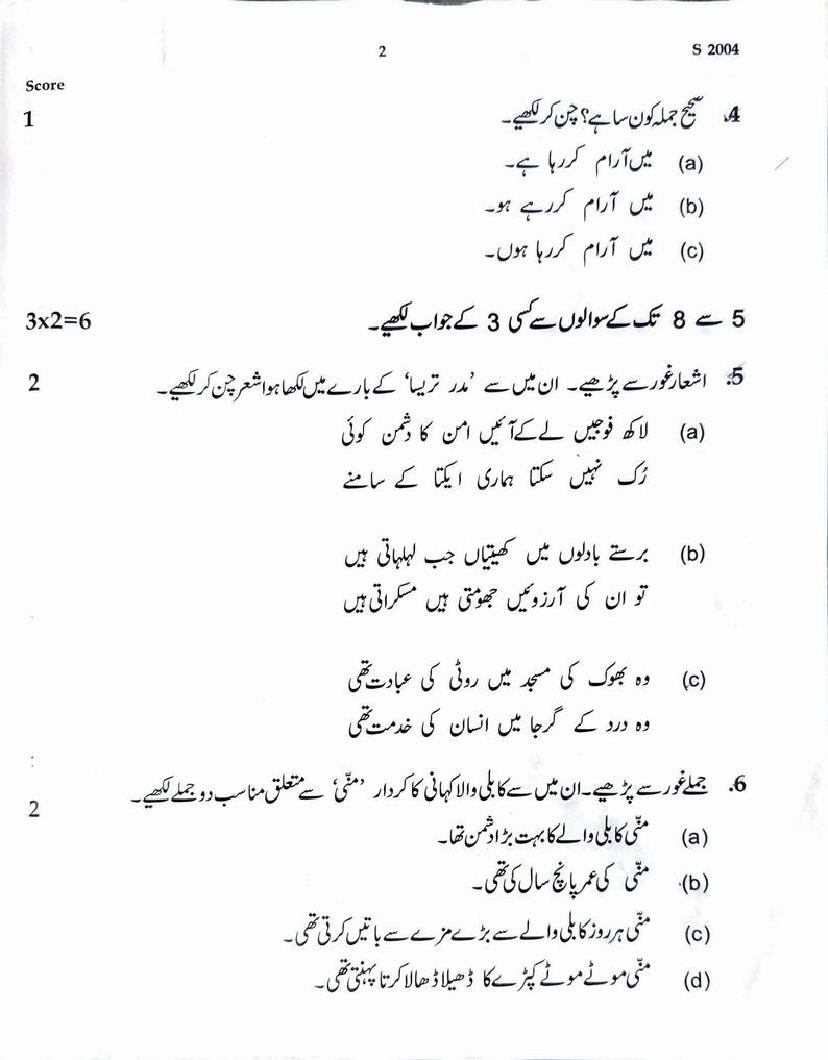 2 S 2004
Score
1 4. صحیح جملہ کون سا ہے؟ چن کر لکھیے۔
(a) میں آرام کررہا ہے۔
(b) میں آرام کررہے ہو۔
(c) میں آرام کررہا ہوں۔
3x2=6 5 سے 8 تک کے سوالوں سے کسی 3 کے جواب لکھیے۔
2 5. اشعار غور سے پڑھیے۔ ان میں سے ’مدر تریسا‘ کے بارے میں لکھا ہوا شعر چن کر لکھیے۔
(a) لاکھ فوجیں لے کے آئیں امن کا دشمن کوئی
رُک نہیں سکتا ہماری ایکتا کے سامنے
(b) برستے بادلوں میں کھیتیاں جب لہلہاتی ہیں
تو ان کی آرزوئیں جھومتی ہیں مسکراتی ہیں
(c) وہ بھوک کی مسجد میں روٹی کی عبادت تھی
وہ درد کے گرجا میں انسان کی خدمت تھی
6. جملے غور سے پڑھیے۔ ان میں سے کابلی والا کہانی کا کردار ’منّی‘ سے متعلق مناسب دو جملے لکھیے۔
2
(a) منّی کابلی والے کا بہت بڑا دشمن تھا۔
(b) منّی کی عمر پانچ سال کی تھی۔
(c) منّی ہر روز کابلی والے سے بڑے مزے سے باتیں کرتی تھی۔
(d) منّی موٹے موٹے کپڑے کا ڈھیلا ڈھالا کرتا پہنتی تھی۔